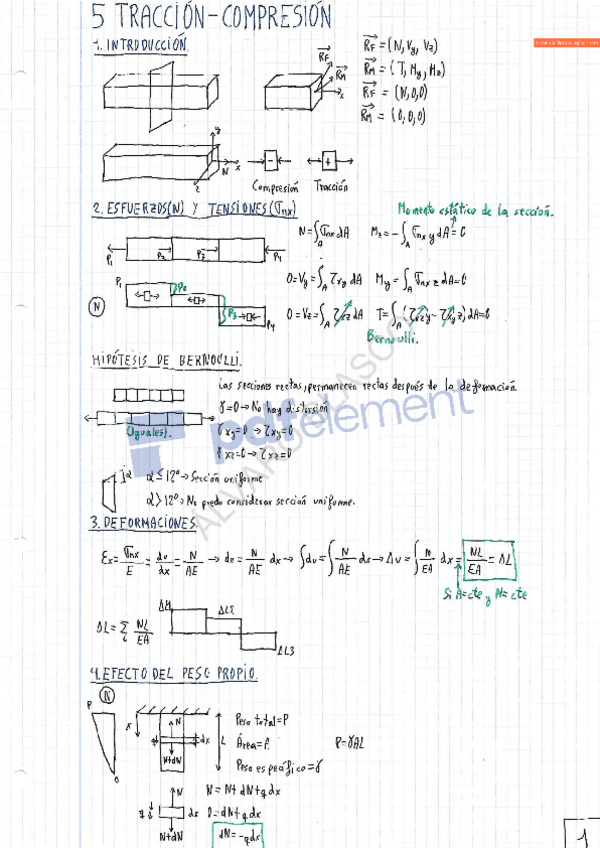 5 TRACCIÓN-COMPRESIÓN
1. INTRODUCCIÓN.
RF RM x
RF = (N, Vy, Vz)
RM = (T, My, Mz)
RF = (N,0,0)
RM = (0,0,0)
y N x z
Compresión Tracción
2. ESFUERZOS(N) Y TENSIONES(σnx)
Momento estático de la sección.
N=∫A σnx dA Mz=-∫A σnx y dA=0
P1 P2 P3 P4
0=Vy=∫A τxy dA My=∫A σnx z dA=0
P1 P2 P3 P4
N
0=Vz=∫A τxz dA T=∫A (τxz y - τxy z) dA=0
Bernoulli.
HIPÓTESIS DE BERNOULLI.
Las secciones rectas, permanecen rectas después de la deformación.
γ=0→No hay distorsión
(Iguales).
γxy=0→τxy=0
γxz=0→τxz=0
α α≤12º→Sección uniforme
α>12º→No puedo considerar sección uniforme.
3. DEFORMACIONES.
εx=σnx/E=du/dx=N/AE→du=N/AE dx→∫du=∫N/AE dx→Δu=∫N/EA dx=NL/EA=ΔL
Si A=cte y N=cte
ΔL=Σi NL/EA
ΔL1 ΔL2 ΔL3
4. EFECTO DEL PESO PROPIO.
N
P 0
x N dx L N+dN
Peso total=P
Área=A
Peso específico=γ
P=γAL
N = N+dN+q dx
q N dx N+dN
0=dN+q dx
dN=-q dx
1
pdfelement
ÁLVARO BLASCO